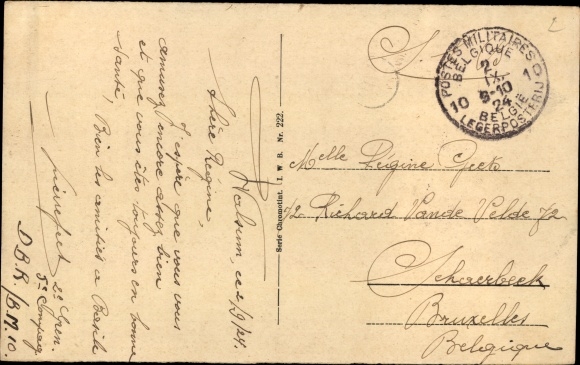 Walsum, ce 2/9/24.
Chère Régine,
J'espère que vous vous
amusez encore assez bien
et que vous êtes toujours en bonne
Santé, Bien les amitiés à
2e Gren.
5e Compag
D.B.R. /B.M.10.
Serie Chromotint. I. W. B. Nr. 222.
S.M.
POSTES MILITAIRES
BELGIQUE
2
IX
10 10
9-10
24
BELGIË
LEGERPOSTERIJ
2
Melle Régine Geets
Richard Vande Velde 72
Schaerbeek
Bruxelles
Belgique